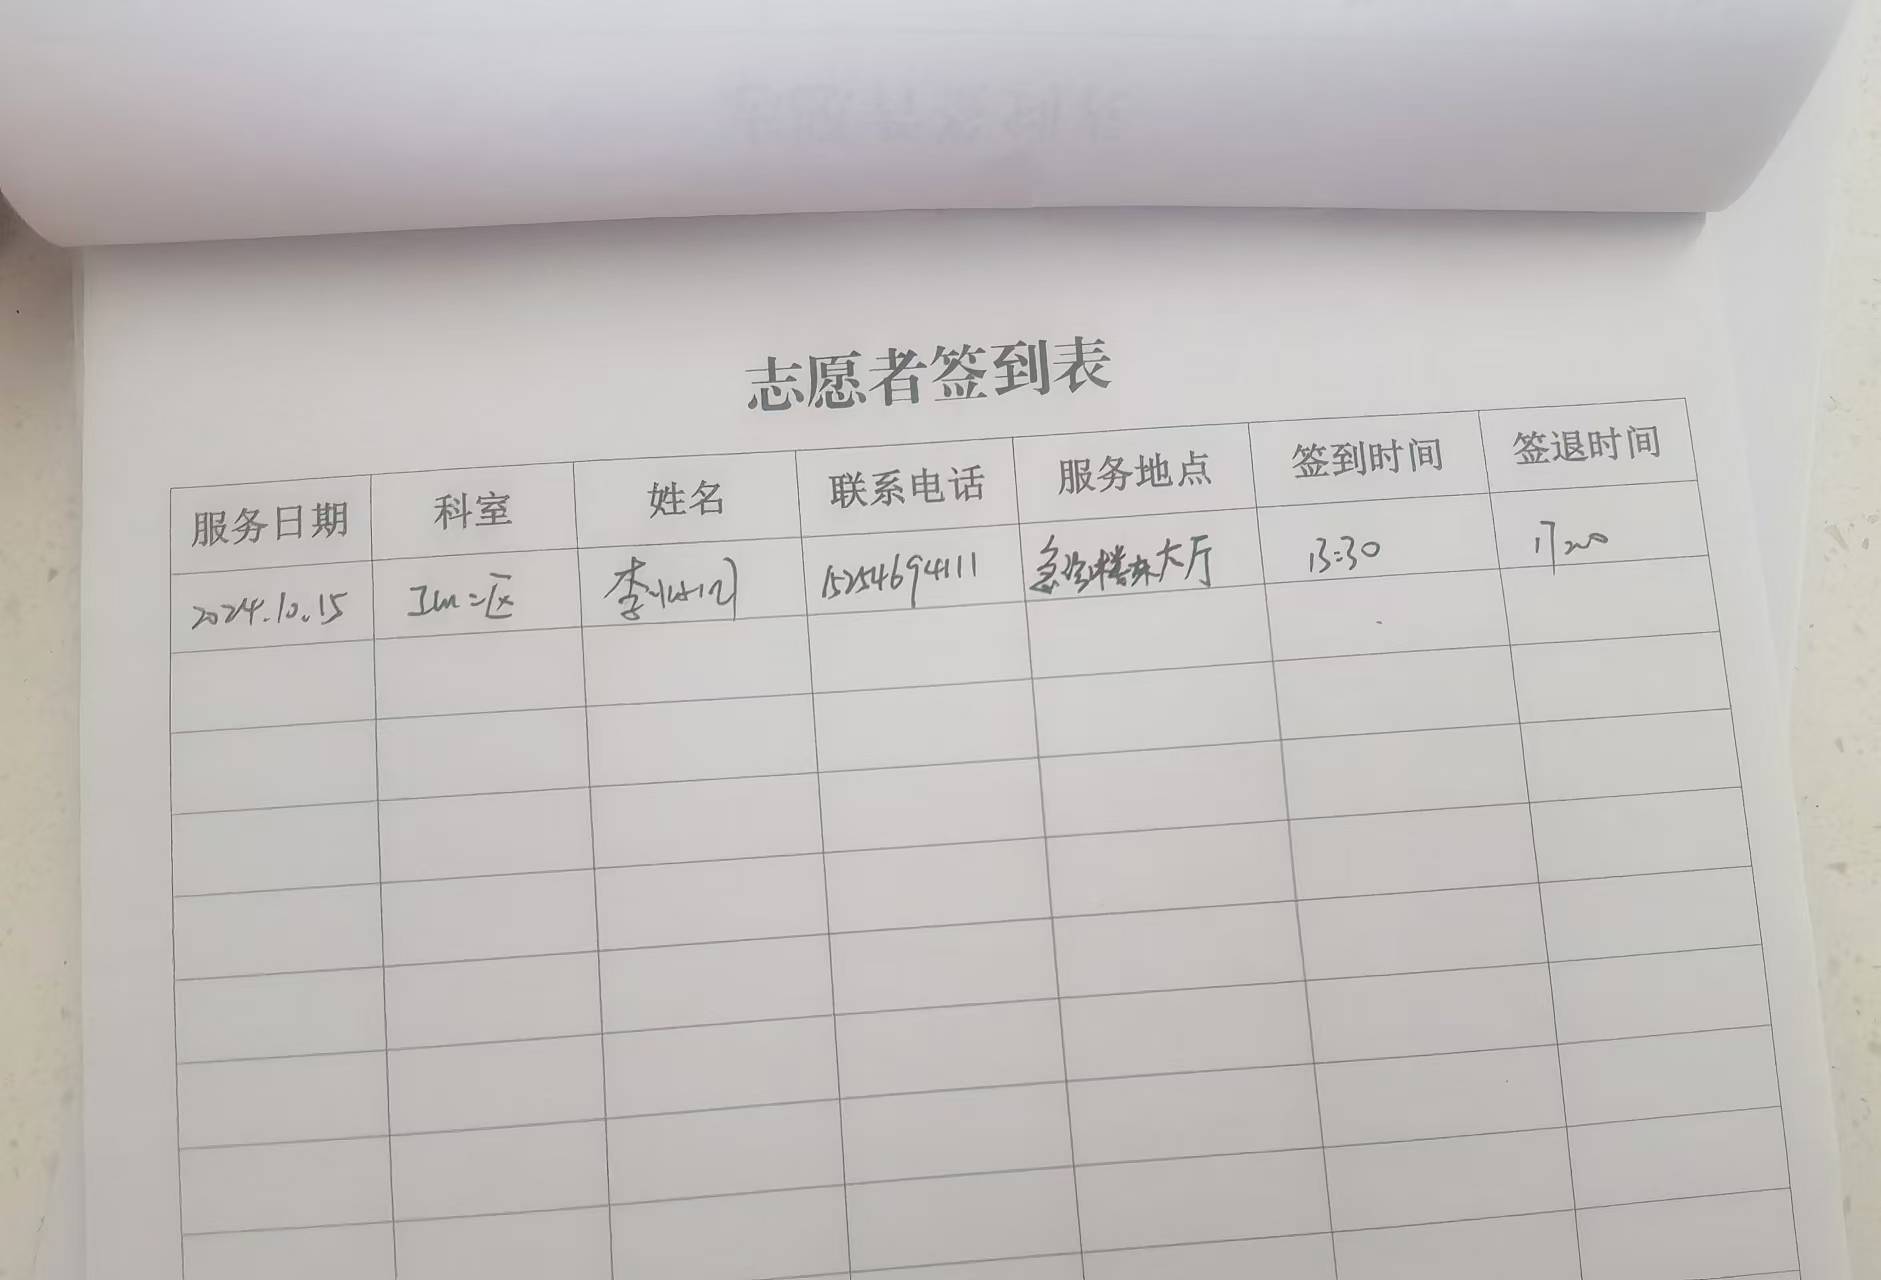 志愿者签到表
服务日期 科室 姓名 联系电话 服务地点 签到时间 签退时间
2024.10.15 二区 李 15254694111 急诊楼大厅 13:30 17:00